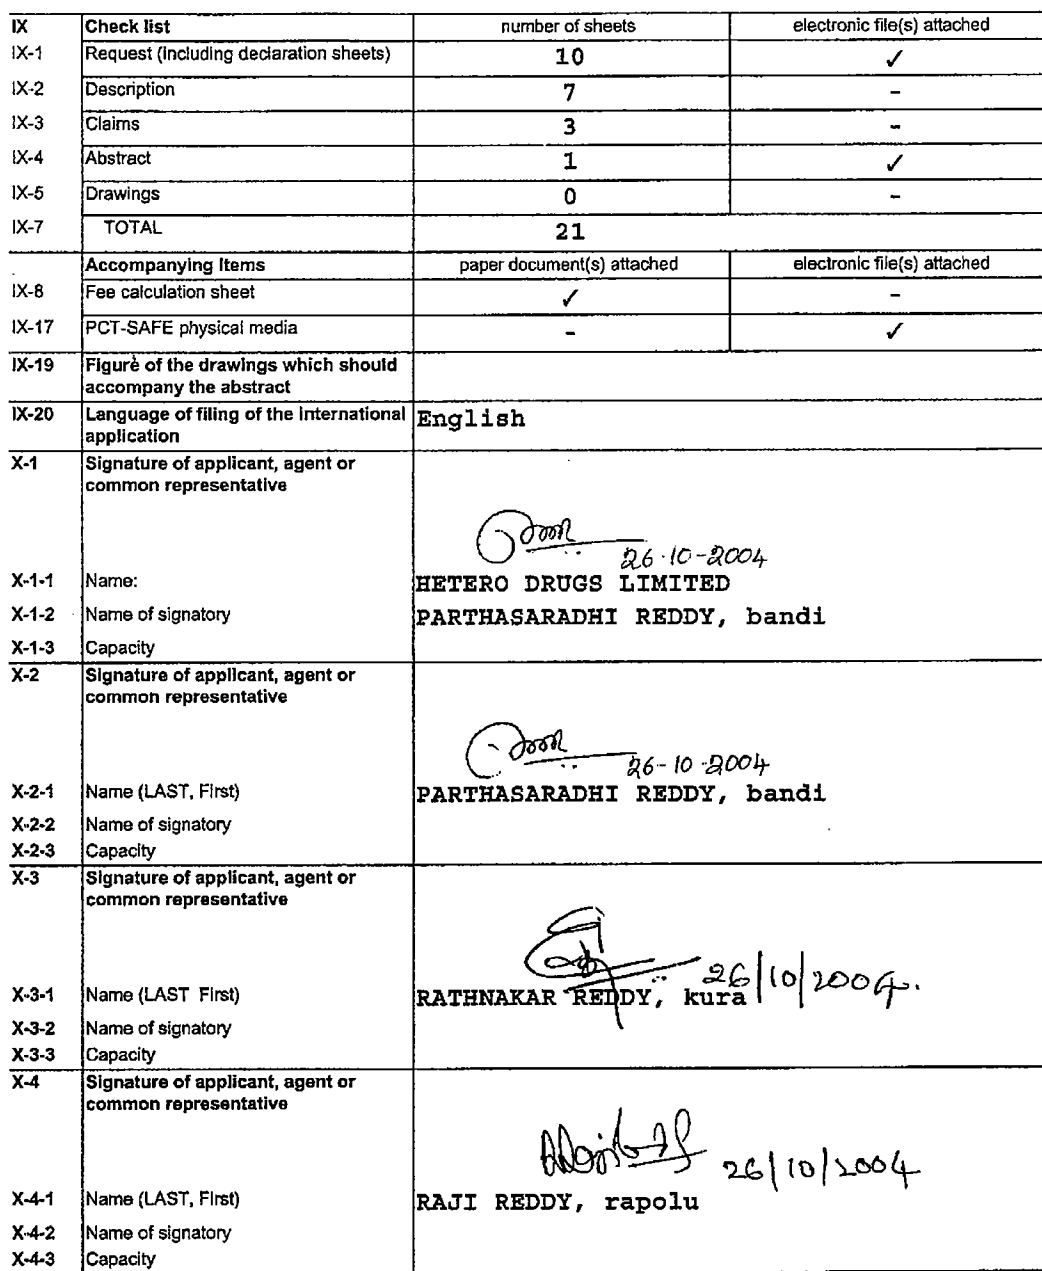 IX Check list number of sheets electronic file(s) attached
IX-1 Request (including declaration sheets) 10 ✓
IX-2 Description 7 -
IX-3 Claims 3 -
IX-4 Abstract 1 ✓
IX-5 Drawings 0 -
IX-7 TOTAL 21
Accompanying Items paper document(s) attached electronic file(s) attached
IX-8 Fee calculation sheet ✓ -
IX-17 PCT-SAFE physical media - ✓
IX-19 Figure of the drawings which should
accompany the abstract
IX-20 Language of filing of the international English
application
X-1 Signature of applicant, agent or
common representative
26-10-2004
X-1-1 Name: HETERO DRUGS LIMITED
X-1-2 Name of signatory PARTHASARADHI REDDY, bandi
X-1-3 Capacity
X-2 Signature of applicant, agent or
common representative
26-10-2004
X-2-1 Name (LAST, First) PARTHASARADHI REDDY, bandi
X-2-2 Name of signatory
X-2-3 Capacity
X-3 Signature of applicant, agent or
common representative
26/10/2004.
X-3-1 Name (LAST First) RATHNAKAR REDDY, kura
X-3-2 Name of signatory
X-3-3 Capacity
X-4 Signature of applicant, agent or
common representative
26/10/2004
X-4-1 Name (LAST, First) RAJI REDDY, rapolu
X-4-2 Name of signatory
X-4-3 Capacity